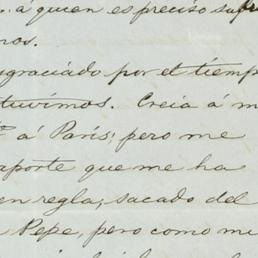 . á quien es preciso sufri
nos.
sgraciado por el tiemp
tuvimos. Creia á m
á Paris; pero me
aporte que me ha
en regla, sacado del
Pepe, pero como mi